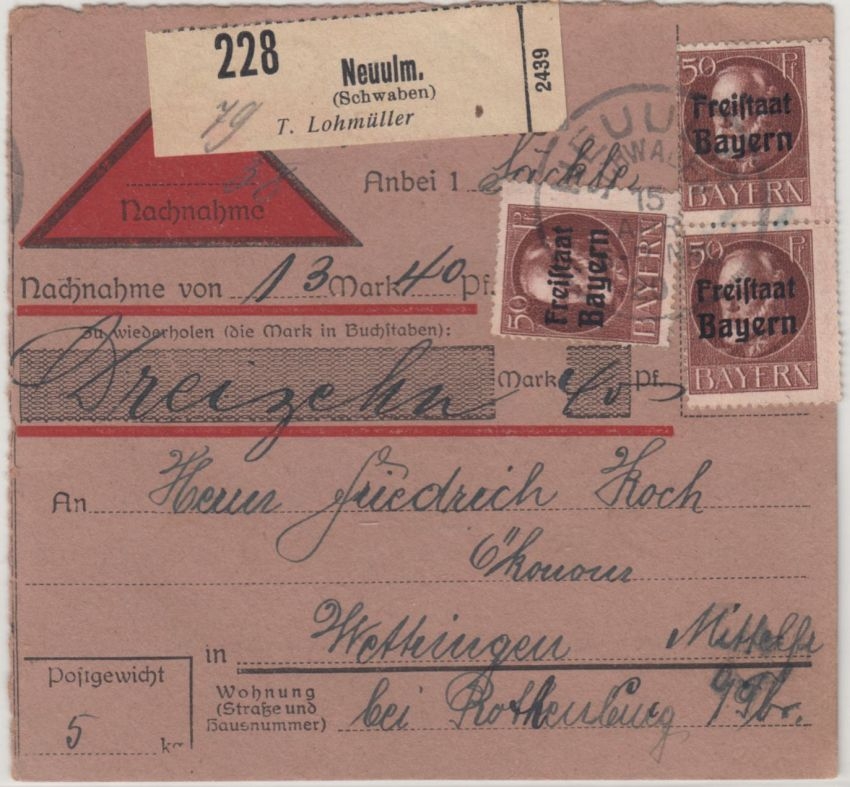 228
Neuulm.
(Schwaben)
79 T. Lohmüller
2439
50 Pf
Freiſtaat
Bayern
BAYERN
Nachnahme
Anbei 1 Säckle
15
50 Pf
Freiſtaat
Bayern
BAYERN
50 Pf
Freiſtaat
Bayern
BAYERN
Nachnahme von 13 Mark 40 Pf.
zu wiederholen (die Mark in Buchſtaben):
Dreizehn Mark 40 Pf.
An Herrn Friedrich Koch
Ökonom
in Wettringen Mittelfr
Poſtgewicht
5 kg
Wohnung
(Straße und
Hausnummer)
bei Rothenburg a/Tbr.